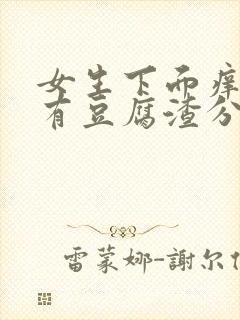 女生下面痒
有豆腐渣分
雷蒙娜-謝尔